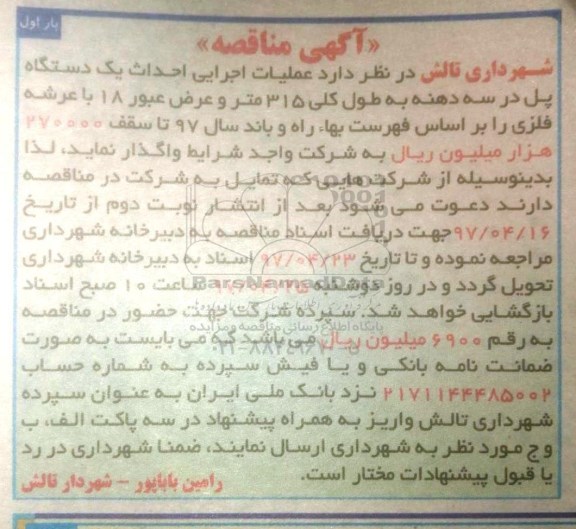 بار اول
«آگهی مناقصه»
شهرداری تالش در نظر دارد عملیات اجرایی احداث یک دستگاه
پل در سه دهنه به طول کلی ۳۱۵ متر و عرض عبور ۱۸ با عرشه
فلزی را بر اساس فهرست بهاء راه و باند سال ۹۷ تا سقف ۲۷۰۰۰۰
هزار میلیون ریال به شرکت واجد شرایط واگذار نماید، لذا
بدینوسیله از شرکت هایی که تمایل به شرکت در مناقصه
دارند دعوت می شود بعد از انتشار نوبت دوم از تاریخ
۹۷/۰۴/۱۶ جهت دریافت اسناد مناقصه به دبیرخانه شهرداری
مراجعه نموده و تا تاریخ ۹۷/۰۴/۲۳ اسناد به دبیرخانه شهرداری
تحویل گردد و در روز دوشنبه ساعت ۱۰ صبح اسناد
بازگشایی خواهد شد. سپرده شرکت جهت حضور در مناقصه
به رقم ۶۹۰۰ میلیون ریال می باشد که می بایست به صورت
ضمانت نامه بانکی و یا فیش سپرده به شماره حساب
۲۱۷۱۱۴۴۴۸۵۰۰۲ نزد بانک ملی ایران به عنوان سپرده
شهرداری تالش واریز به همراه پیشنهاد در سه پاکت الف، ب
و ج مورد نظر به شهرداری ارسال نمایند، ضمنا شهرداری در رد
یا قبول پیشنهادات مختار است.
رامین باباپور - شهردار تالش
ParsNamadData
پایگاه اطلاع رسانی مناقصه و مزایده